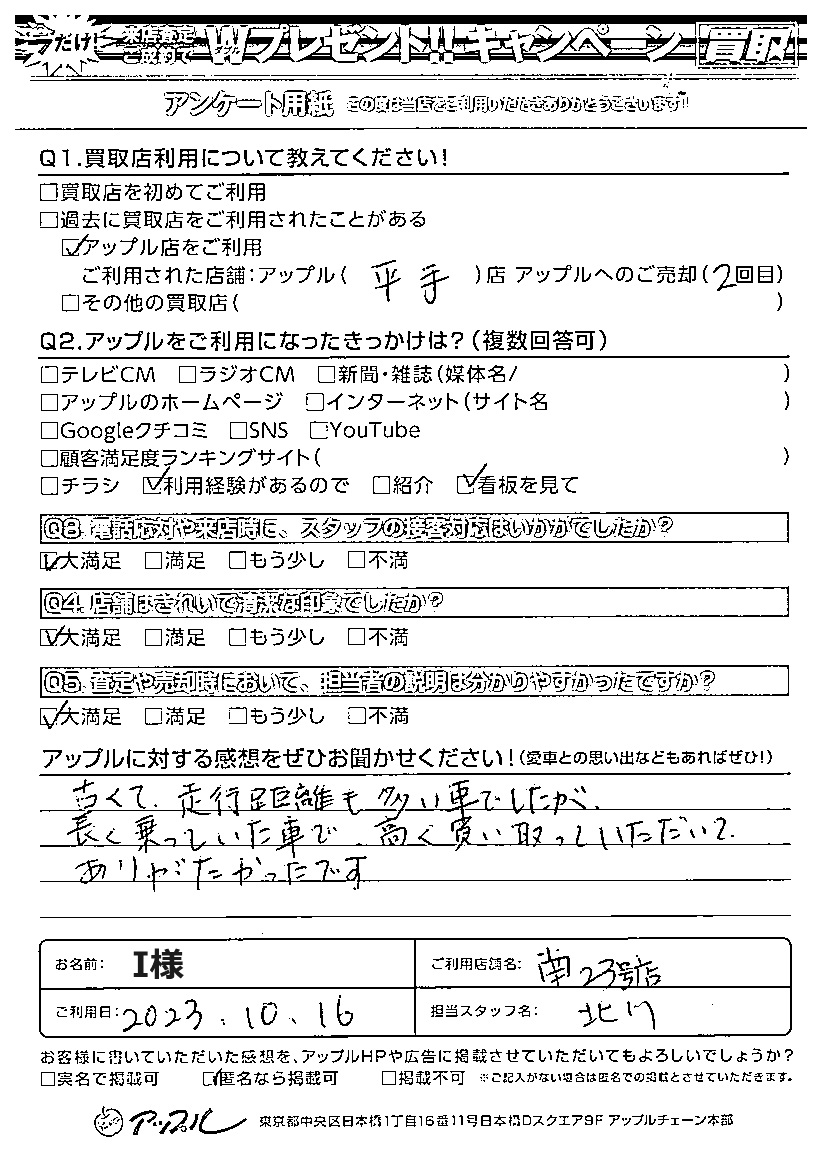 今だけ! 来店査定ご成約で Wプレゼント!!キャンペーン 買取
アンケート用紙 この度は当店をご利用いただきありがとうございます!
Q1.買取店利用について教えてください!
□買取店を初めてご利用
□過去に買取店をご利用されたことがある
☑アップル店をご利用
ご利用された店舗:アップル( 平手 )店 アップルへのご売却(2回目)
□その他の買取店( )
Q2.アップルをご利用になったきっかけは?(複数回答可)
□テレビCM □ラジオCM □新聞・雑誌(媒体名/ )
□アップルのホームページ □インターネット(サイト名 )
□Googleクチコミ □SNS □YouTube
□顧客満足度ランキングサイト( )
□チラシ ☑利用経験があるので □紹介 ☑看板を見て
Q3.電話応対や来店時に、スタッフの接客対応はいかがでしたか?
☑大満足 □満足 □もう少し □不満
Q4.店舗はきれいで清潔な印象でしたか?
☑大満足 □満足 □もう少し □不満
Q5.査定や売却時において、担当者の説明は分かりやすかったですか?
☑大満足 □満足 □もう少し □不満
アップルに対する感想をぜひお聞かせください!(愛車との思い出などもあればぜひ!)
古くて、走行距離も多い車でしたが、
長く乗っていた車で、高く買い取っていただいて、
ありがたかったです
お名前: I様 ご利用店舗名: 南23号店
ご利用日:2023.10.16 担当スタッフ名: 北川
お客様に書いていただいた感想を、アップルHPや広告に掲載させていただいてもよろしいでしょうか?
□実名で掲載可 ☑匿名なら掲載可 □掲載不可 ※ご記入がない場合は匿名での掲載とさせていただきます。
アップル 東京都中央区日本橋1丁目16番11号日本橋Dスクエア9F アップルチェーン本部